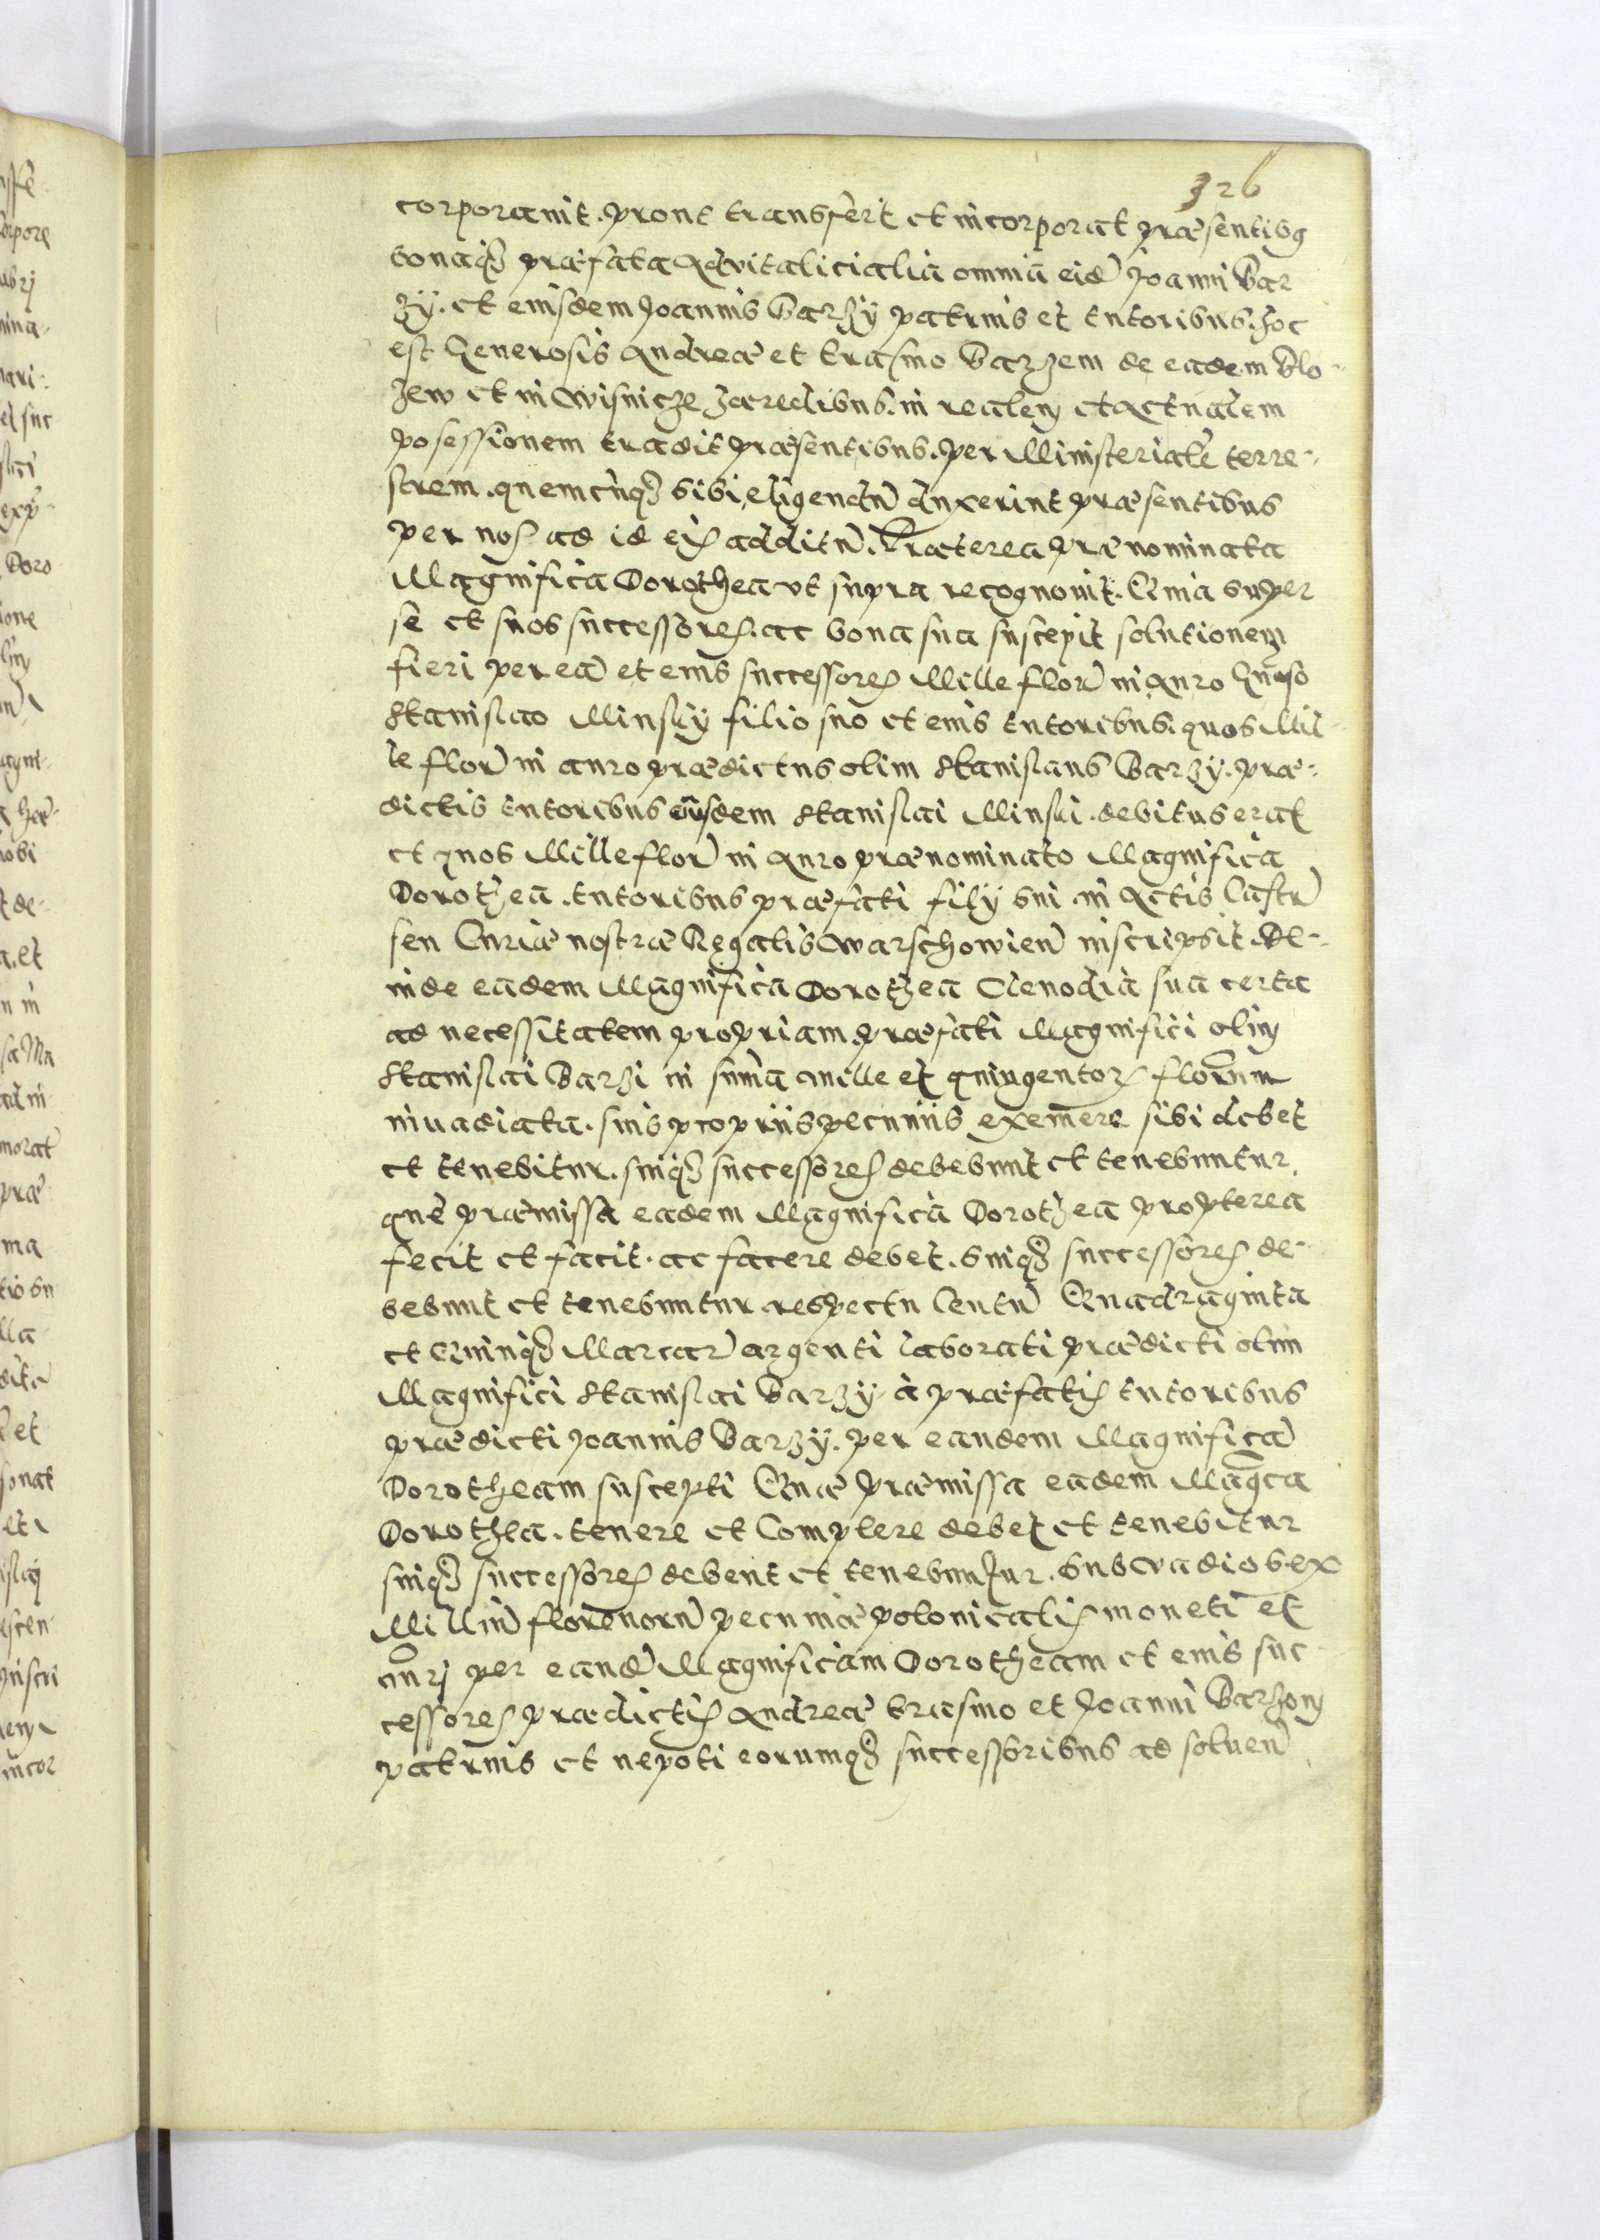 326
corporavit. prout transfert et incorporat præsentibq
bonaqз præfata advitalicialia omnia eid Joanni Bar
zÿ. et eiusdem Joannis Barzÿ patruis et tutoribus. hoc
est Generosis Andreæ et Erasmo Barzem de eadem Blo-
zew et in Wisnicze hæredibus. in realem et actualem
posessionem tradit præsentibus. per Ministerialē terre-
strem. quemcunqз sibi eligendū duxerint præsentibus
per nos ad id eis additū. Præterea prænominata
Magnifica Dorothea ut supra recognovit. Quia super
se et suos successores. ac bona sua suscepit solutionem
fieri per eā et eius successores Mille flor in auro Gnoso
Stanislao Minskÿ filio suo et eius tutoribus. quos Mil-
le flor in auro prædictus olim Stanislaus Barzÿ. præ-
dictis tutoribus eiusdem Stanislai Minski. debitus erat
et quos Mille flor in auro prænominato Magnifica
Dorothea. tutoribus præfati filÿ sui. in Actis Castr
seu Curiæ nostræ Regalis Warschowien inscripsit. De-
inde eadem Magnifica Dorothea Clenodia sua certa
ad necessitatem propriam præfati Magnifici olim
Stanislai Barzi in sum̄a mille et quingentor florenum
invadiata. suis propriis pecuniis exemere sibi debet
et tenebitur. suiqз successores debebunt et tenebuntur.
que præmissa eadem Magnifica Dorothea propterea
fecit et facit. ac facere debet. suiqз successores de-
bebunt et tenebuntur respectu Centū Quadraginta
et Quinqз Marcar argenti laborati prædicti olim
Magnifici Stanislai Barzÿ à præfatis tutoribus
prædicti Joannis Barzÿ. per eandem Magnificā
Dorotheam suscepti Quæ præmissa eadem Magca
Dorothea. tenere et Complere debet et tenebitur
suiqз successores debent et tenebuntur. sub vadio sex
Milliū florenorū pecuniæ polonicalis moneti et
nūri per eandē Magnificam Dorotheam et eius suc
cessores prædictis Andreæ Erasmo et Joanni Barzom
patruis et nepoti eorumqз successoribus ad solven